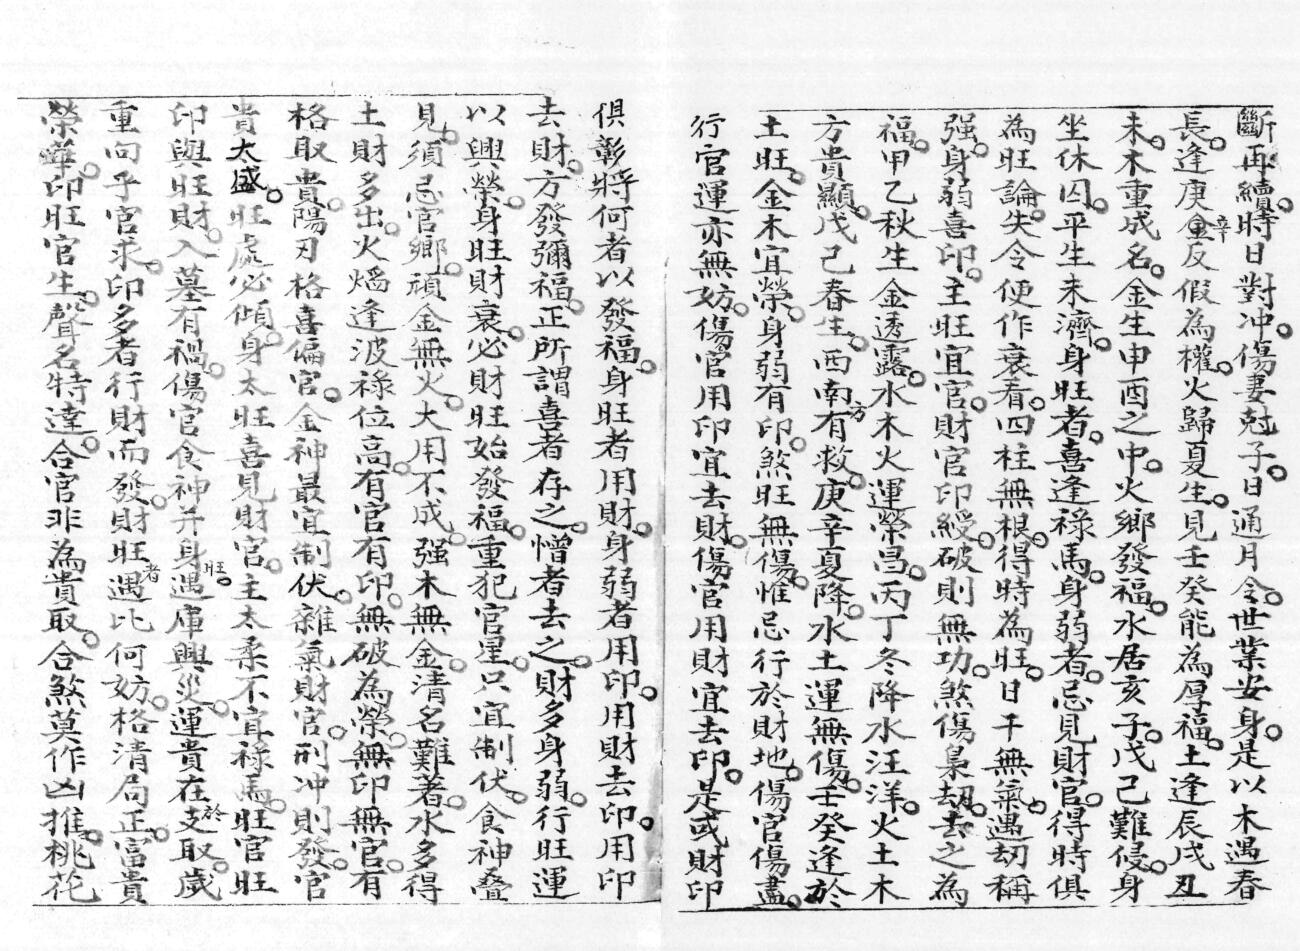 斷再續。時日對冲。傷妻尅子。日通月令。世業安身。是以木遇春
長。逢庚辛反假為權。火歸夏生。見壬癸能為厚福。土逢辰戌丑
未。木重成名。金生申酉之中。火鄉發福。水居亥子。戊己難侵。身
坐休囚。平生未濟。身旺者。喜逢祿馬。身弱者。忌見財官。得時俱
為旺論。失令便作衰看。四柱無根。得時為旺。日干無氣。遇刧稱
强。身弱喜印。主旺宜官。財官印綬。破則無功。煞傷梟刼。去之為
福。甲乙秋生金透露。水木火運榮昌。丙丁冬降水汪洋。火土木
方貴顯。戊己春生。西南方有救。庚辛夏降。水土運無傷。壬癸逢於
土旺。金木宜榮。身弱有印。煞旺無傷。惟忌行於財地。傷官傷盡。
行官運亦無妨。傷官用印宜去財。傷官用財宜去印。是或財印
俱彰將何者以發福。身旺者用財。身弱者用印。用財去印。用印
去財。方發彌福。正所謂喜者存之。憎者去之。財多身弱。行旺運
以興榮。身旺財衰。必財旺始發福。重犯官星。只宜制伏。食神叠
見。須忌官鄉。頑金無火。大用不成。强木無金。清名難著。水多得
土財多出。火熖逢波祿位高。有官有印。無破為榮。無印無官。有
格取貴。陽刃格喜偏官。金神最宜制伏。雜氣財官。刑冲則發。官
貴太盛。旺處必傾。身太旺喜見財官。主太柔不宜祿馬。旺官旺
印與旺財。入墓有禍。傷官食神并身旺。遇庫興災。運貴在於支取。歲
重向乎官求。印多者行財而發。財旺者遇比何妨。格清局正。富貴
榮華。印旺官生。聲名特達。合官非為貴取。合煞莫作凶推。桃花